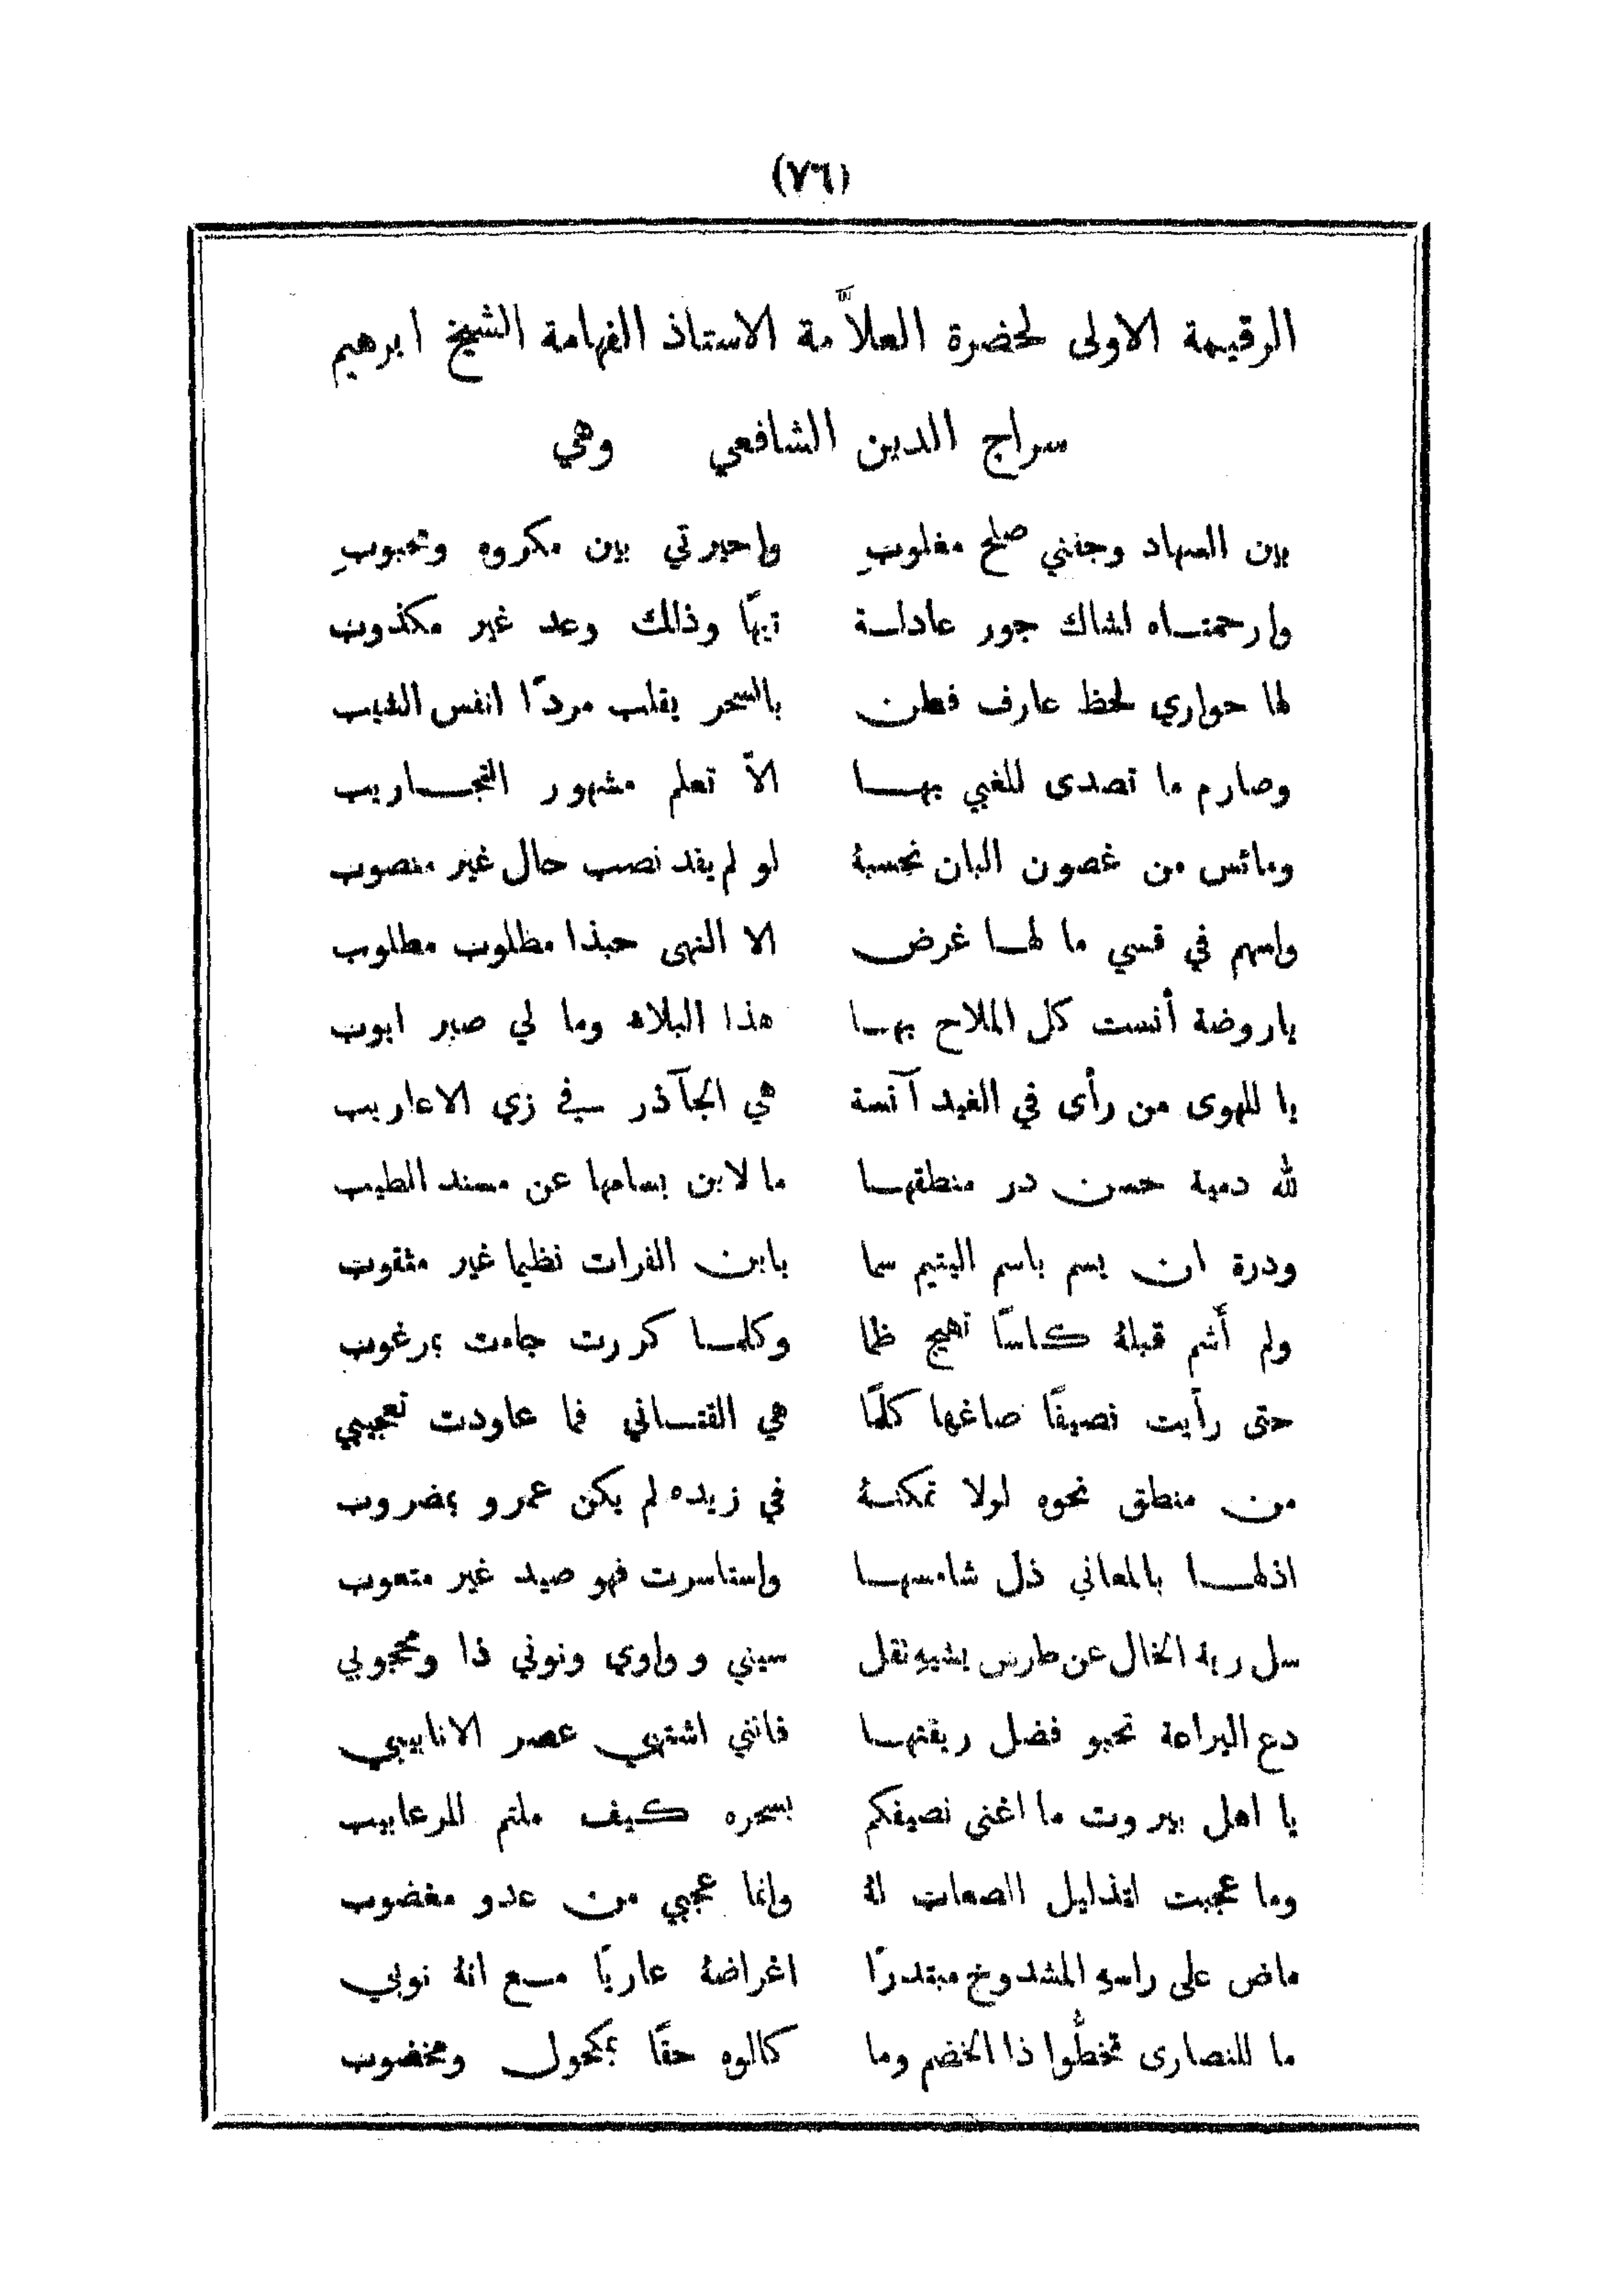 (٧٦)
الرقيمة الاولى لحضرة العلاَّمة الاستاذ الفهامة الشيخ ابرهيم
سراج الدين الشافعي وهي
بين السهاد وجفني صلح مغلوبِ واحيرتي بين مكروه ومحبوبِ
وارحمتاه لشاك جور عادلة تيهًا وذلك وعد غير مكذوب
لها حواري لحظ عارف فطن بالسحر يقلب مردًا انفس الشيب
وصارم ما تصدى للغبي بها الاّ تعلم مشهور التجاريب
ومائس من غصون البان نحسبهُ لو لم يفد نصب حال غير منصوب
واسهم في قسي ما لها غرض الا النهى حبذا مظلوب مطلوب
ياروضة أنست كل الملاح بها هذا البلاء وما لي صبر ايوب
يا للهوى من رأى في الغيد آنسة هي الجآذر في زي الاعاريب
لله دمية حسن در منطقها ما لابن بسامها عن مسند الطيب
ودرة ان يسم باسم اليتيم سما بابن الفرات نظيما غير مثقوب
ولم أشم قبلهُ كاسًا تهيج ظما وكلما كررت جاءت بمرغوب
حتى رأيت نصيفًا صاغها كلمًا هي القتساني فما عاودت تعجيبي
من منطق نحوه لولا تمكنهُ في زيده لم يكن عمرو بمضروب
اذلها بالمعاني ذل شامسها واستاسرت فهو صيد غير متعوب
سل ربة الخال عن طرس بشيهِ نقل سيني و واوي ونوني ذا ومحجوبي
دع اليراعة تحبو فضل ريقتها فانني اشتهي عصر الانابيبي
يا اهل بيروت ما اغنى نصيفكم بسحره كيف ملتم للرعابيب
وما عجبت لتذليل الصعاب لهُ وانما عجبي من عدو مغضوب
ماض على راسهِ المشدوخ مبتدرًا اغراضهُ عاريًا مع انهُ نوبي
ما للنصارى تخطُّوا ذا الخضم وما كالوه حقًا بمكحول ومخضوب